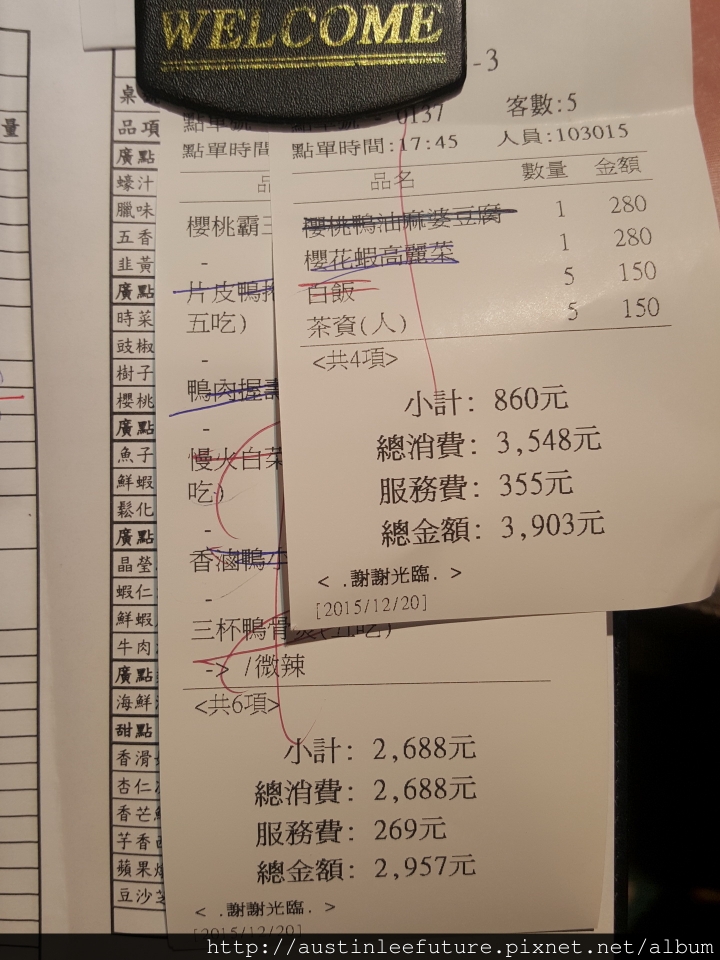 WELCOME
-3
點單號 - 0137 客數:5
點單時間:17:45 人員:103015
品名 數量 金額
櫻桃鴨油麻婆豆腐 1 280
櫻花蝦高麗菜 1 280
白飯 5 150
茶資(人) 5 150
<共4項>
小計: 860元
總消費: 3,548元
服務費: 355元
總金額: 3,903元
< .謝謝光臨. >
[2015/12/20]
點單時間
櫻桃霸王
-
片皮鴨
五吃)
-
鴨肉握壽
-
慢火白菜
吃)
-
香滷鴨
-
三杯鴨骨
-> /微辣
<共6項>
小計: 2,688元
總消費: 2,688元
服務費: 269元
總金額: 2,957元
< .謝謝光臨. >
[2015/12/20]
量
桌
品項
廣點
蠔汁
臘味
五香
韭黃
廣點
時菜
豉椒
樹子
櫻桃
廣點
魚子
鮮蝦
鬆化
廣點
晶瑩
蝦仁
鮮蝦
牛肉
廣點
海鮮
甜點
香滑
杏仁
香芒
芋香
蘋果
豆沙
http://austinleefuture.pixnet.net/album